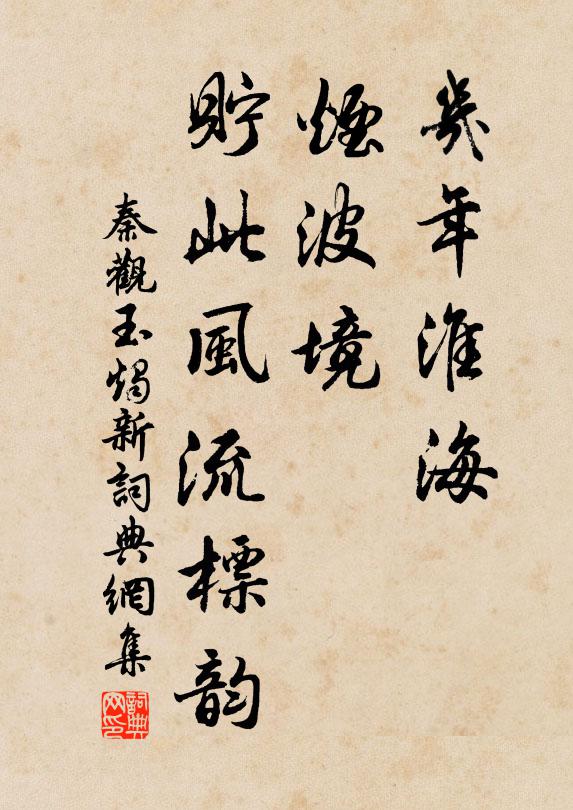 幾年淮海
煙波境
貯此風流標韻
秦觀玉燭新詞典網集
詞典網印